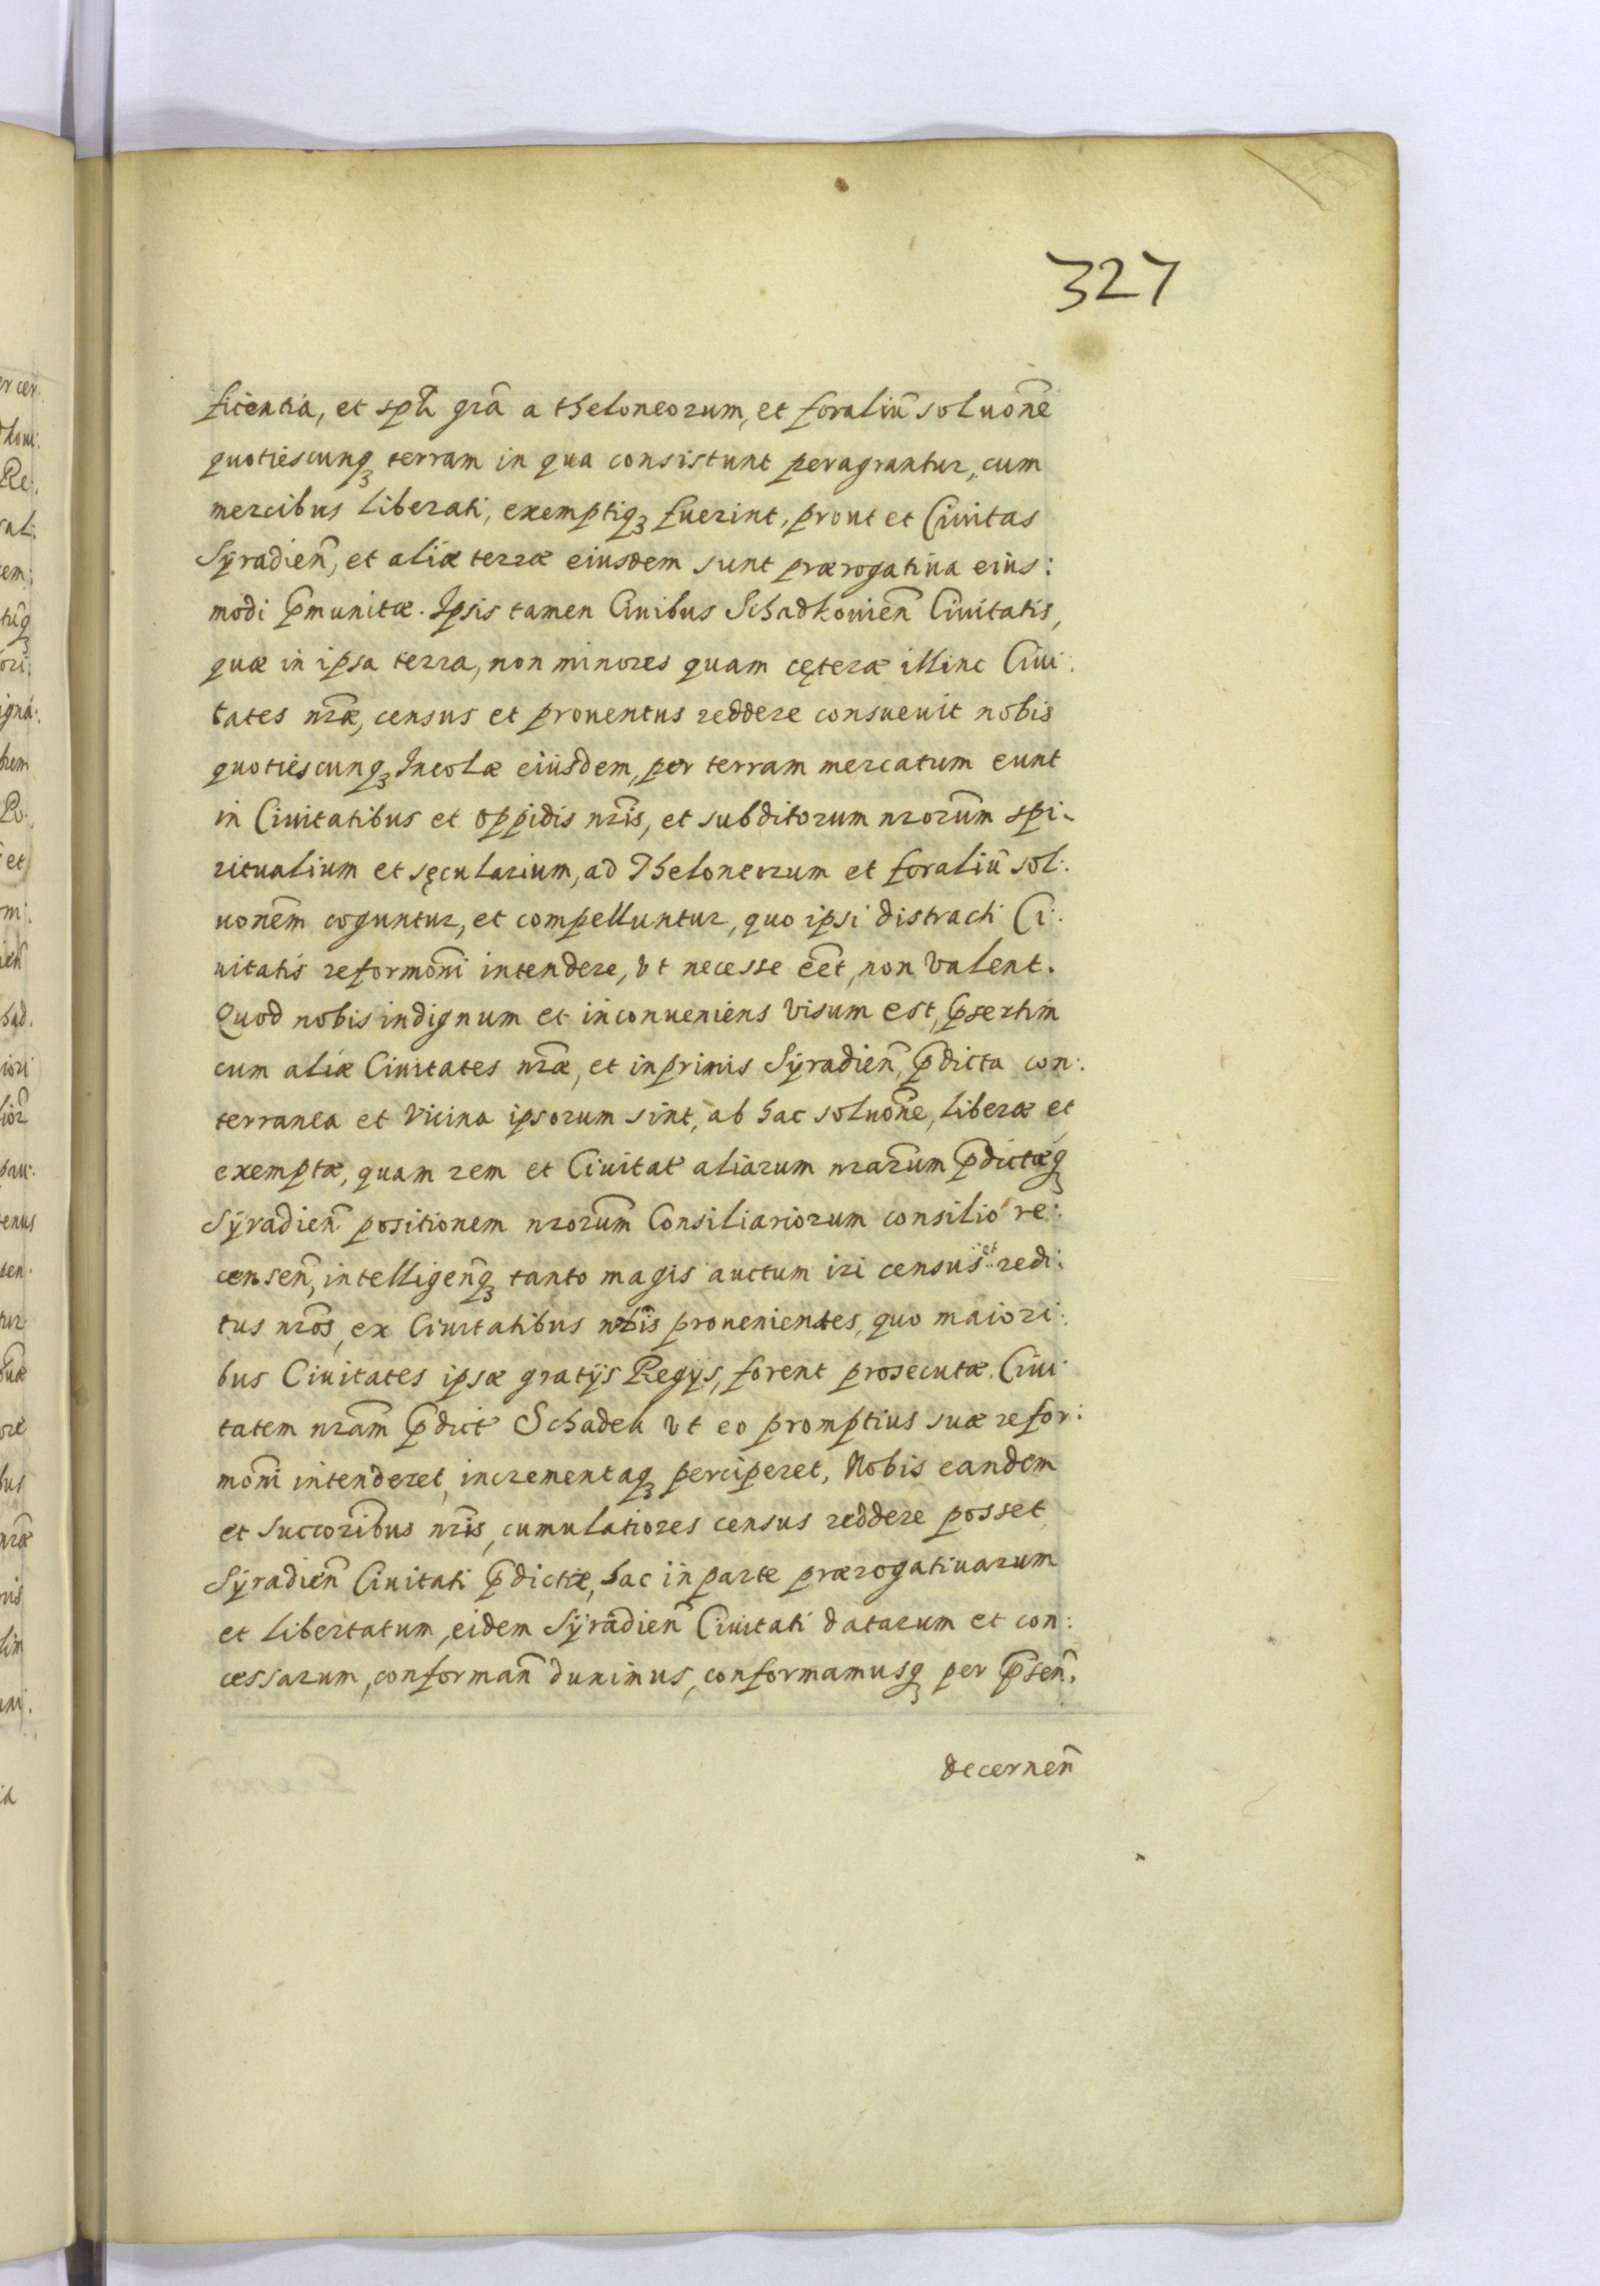 327
ficentia, et spl̃i gr̃a a theloneorum, et foraliũ soluoñe
quotiescunqꝫ terram in qua consistunt peragrantur, cum
mercibus liberati, exemptiqꝫ fuerint, prout et Ciuitas
Sÿradieñ, et aliæ terræ eiusdem sunt prærogatiua eius:
modi p̃munitæ. Ipsis tamen Ciuibus Schadkouieñ Ciuitatis,
quæ in ipsa terra, non minores quam cęteræ illinc Ciui:
tates nr̃æ, census et prouentus reddere consueuit nobis
quotiescunqꝫ Incolæ eiusdem, per terram mercatum eunt
in Ciuitatibus et oppidis nr̃is, et subditorum nrorũm spi:
ritualium et sęcularium, ad Theloneorum et foraliũ sol:
uonẽm coguntur, et compelluntur, quo ipsi distracti Ci:
uitatis reformoñi intendere, vt necesse eẽt, non valent.
Quod nobis indignum et inconueniens visum est, p̃sertim
cum aliæ Ciuitates nr̃æ, et inprimis Sÿradieñ, p̃dicta con:
terranea et vicina ipsorum sint, ab hac soluoñe, liberæ et
exemptæ, quam rem et Ciuitat aliarum nrarũm p̃dictæqꝫ
Sÿradieñ positionem nrorũm Consiliariorum consilio re:
censeñ, intelligeñqꝫ tanto magis auctum iri census et redi:
tus nr̃os, ex Ciuitatibus nr̃is prouenientes, quo maiori:
bus Ciuitates ipsæ gratÿs Regÿs, forent prosecutæ. Ciui
tatem nrãm p̃dict Schadek vt eo promptius suæ refor:
moñi intenderet, incrementaqꝫ perciperet, Nobis eandem
et Succorĩbus nr̃is, cumulatiores census reddere posset
Sÿradieñ Ciuitati p̃dictæ, hac in parte prærogatiuarum
et libertatum, eidem Sÿradieñ Ciuitati datarum et con:
cessarum, conformañ duximus, conformamusqꝫ per p̃señ.
decerneñ